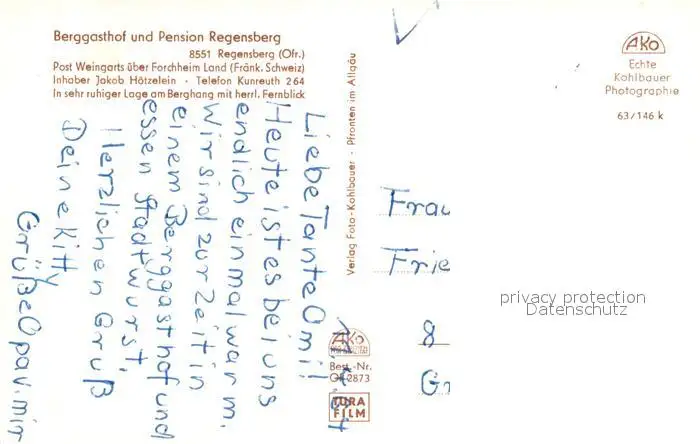 Berggasthof und Pension Regensberg
8551 Regensberg (Ofr.)
Post Weingarts über Forchheim Land (Fränk. Schweiz)
Inhaber Jakob Hötzelein · Telefon Kunreuth 264
In sehr ruhiger Lage am Berghang mit herrl. Fernblick
Liebe Tante Omi!
Heute ist es bei uns
endlich einmal warm.
Wir sind zur Zeit in
einem Berggasthof und
essen Stadtwurst.
Herzlichen Gruß
Deine Kitty
Grüße Opa u. mir
Verlag Foto-Kohlbauer · Pfronten im Allgäu
AKO
Echte
Kohlbauer
Photographie
63/146 k
Frau
Frie
8
Gr
AKO
Best.-Nr.
Of 2873
TURA
FILM
privacy protection
Datenschutz